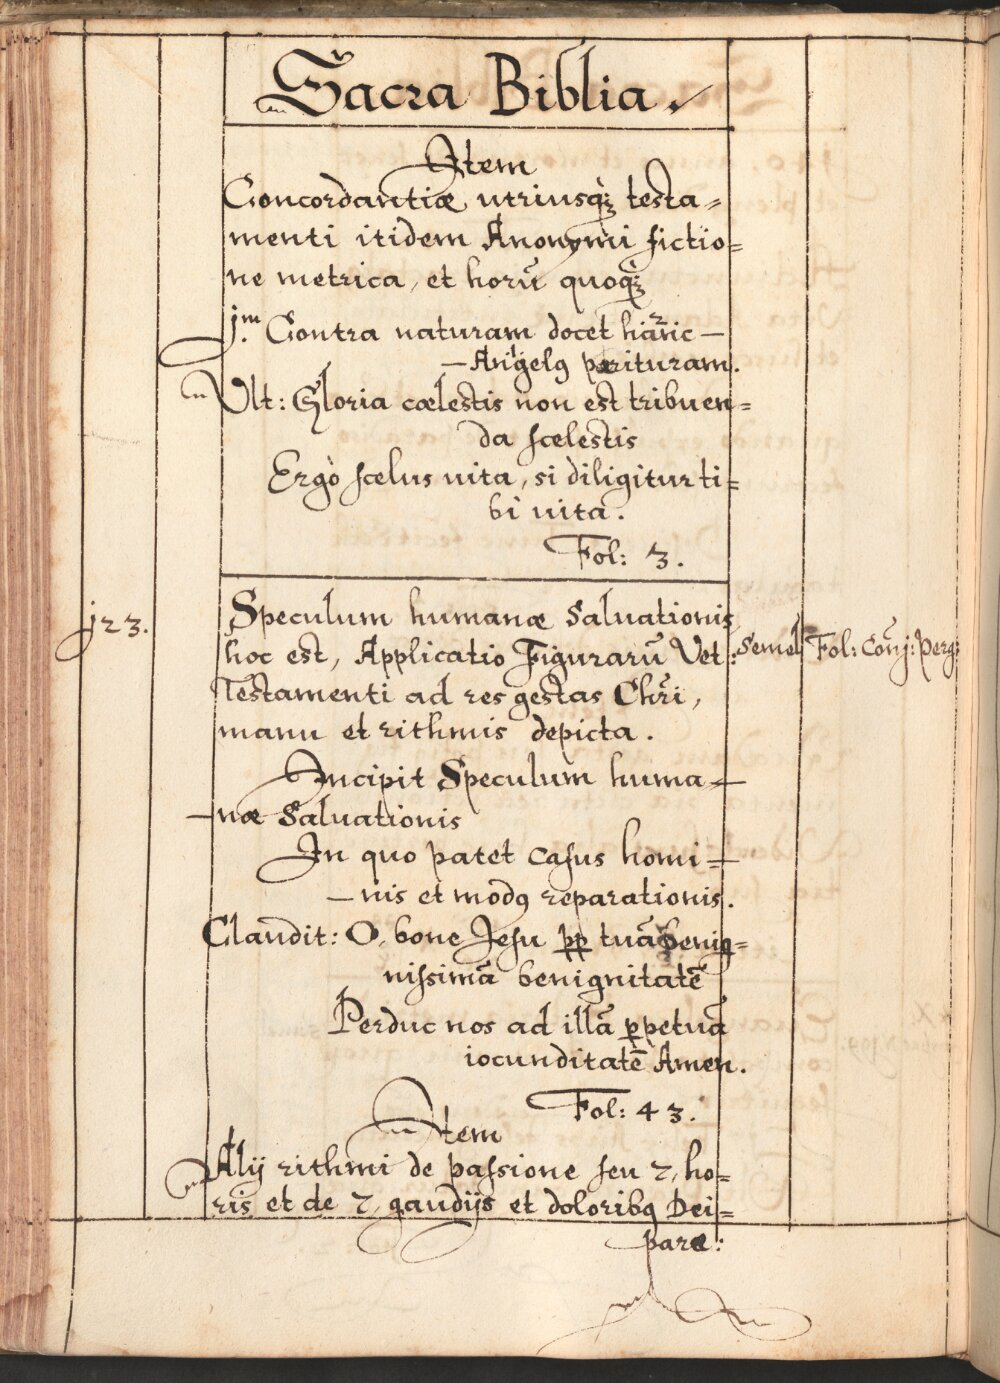 Sacra Biblia.
Item
Concordantiæ utriusq; testa=
menti itidem Anonymi fictio=
ne metrica, et horū quoq;
j.m Contra naturam docet hanc —
— Angelꝰ parituram.
Ult: Gloria cœlestis non est tribuen=
da scelestis
Ergò scelus vita, si diligitur ti=
bi vita.
Fol: 3.
j23.
Speculum humanæ Salvationis
hoc est, Applicatio Figurarū Vet:
Testamenti ad res gestas Chri̅,
manu et rithmis depicta.
Semel
Fol: Conj: Perg:
Incipit Speculum huma=
—næ Salvationis
In quo patet casus homi=
— nis et modꝰ reparationis.
Claudit: O, bone Jesu pp tuā benig=
nissimā benignitatē
Perduc nos ad illā ꝑpetuā
iocunditatē Amen.
Fol: 43.
Item
Alij rithmi de passione seu 7, ho=
ris et de 7, gaudijs et doloribꝰ Dei=
paræ: